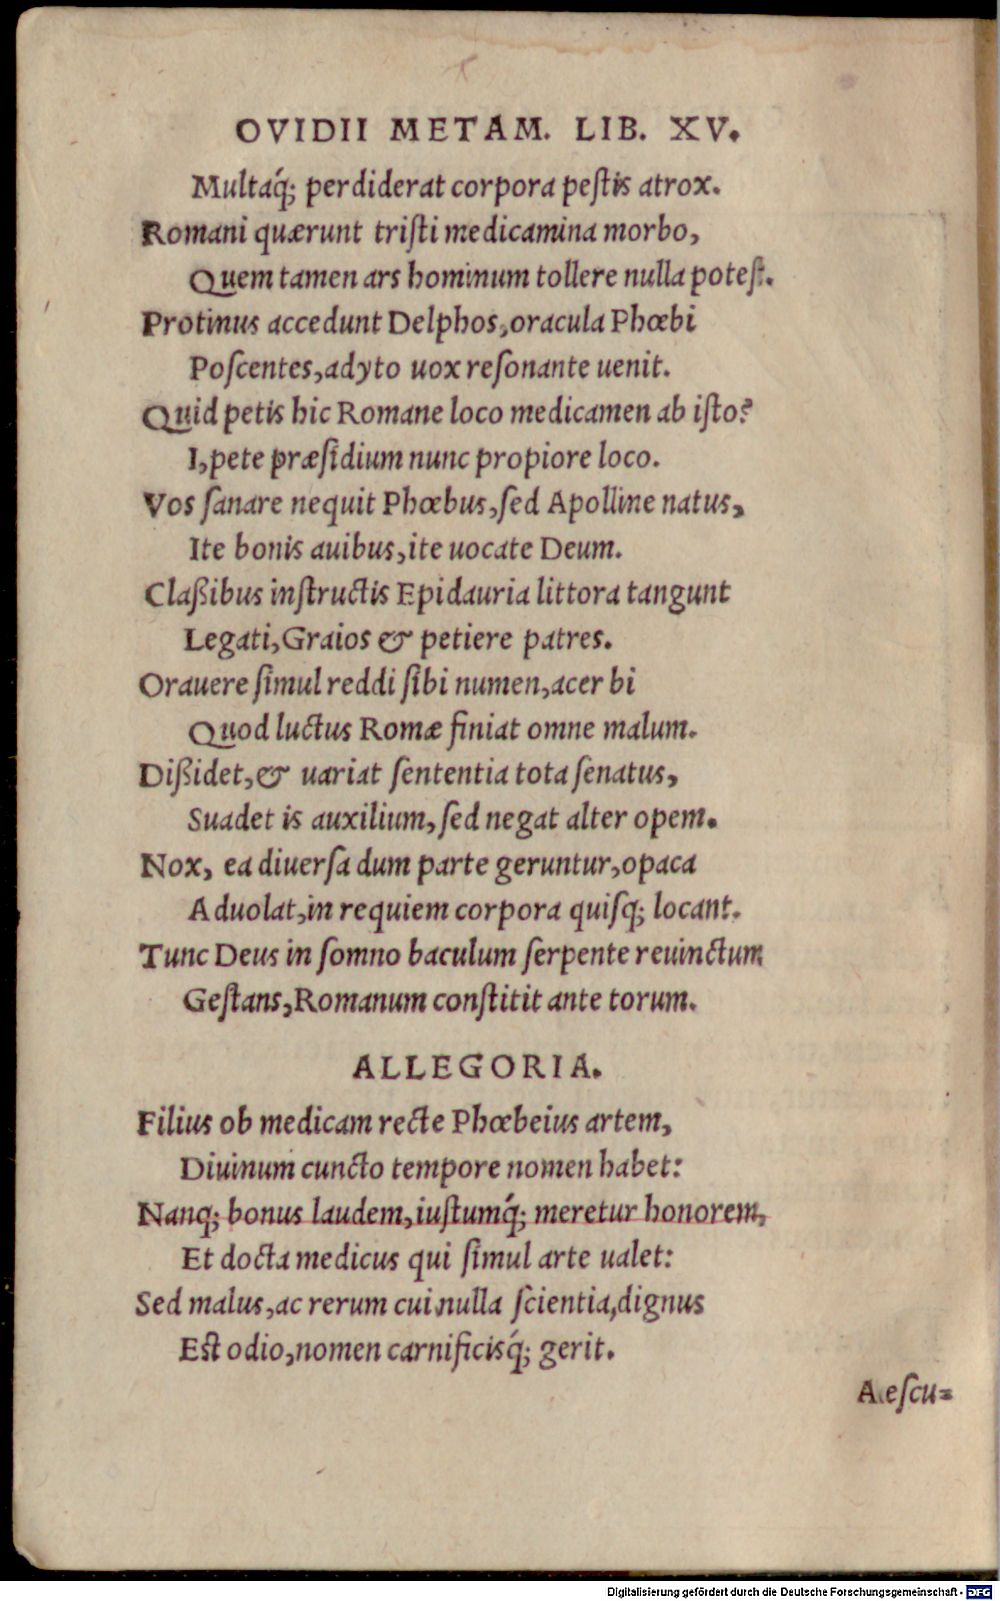 OVIDII METAM. LIB. XV.
Multaq́; perdiderat corpora peſtis atrox.
Romani quærunt triſti medicamina morbo,
Quem tamen ars hominum tollere nulla poteſt.
Protinus accedunt Delphos, oracula Phœbi
Poſcentes, adyto uox reſonante uenit.
Quid petis hic Romane loco medicamen ab iſto?
I, pete præſidium nunc propiore loco.
Vos ſanare nequit Phœbus, ſed Apolline natus,
Ite bonis auibus, ite uocate Deum.
Claßibus inſtructis Epidauria littora tangunt
Legati, Graios & petiere patres.
Orauere ſimul reddi ſibi numen, acerbi
Quod luctus Romæ finiat omne malum.
Dißidet, & uariat ſententia tota ſenatus,
Suadet is auxilium, ſed negat alter opem.
Nox, ea diuerſa dum parte geruntur, opaca
Aduolat, in requiem corpora quiſq; locant.
Tunc Deus in ſomno baculum ſerpente reuinctum
Geſtans, Romanum conſtitit ante torum.
ALLEGORIA.
Filius ob medicam recte Phœbeius artem,
Diuinum cuncto tempore nomen habet:
Nanq; bonus laudem, iuſtumq́; meretur honorem,
Et docta medicus qui ſimul arte ualet:
Sed malus, ac rerum cui nulla ſcientia, dignus
Eſt odio, nomen carnificisq́; gerit.
Aeſcu=
Digitalisierung gefördert durch die Deutsche Forschungsgemeinschaft - DFG